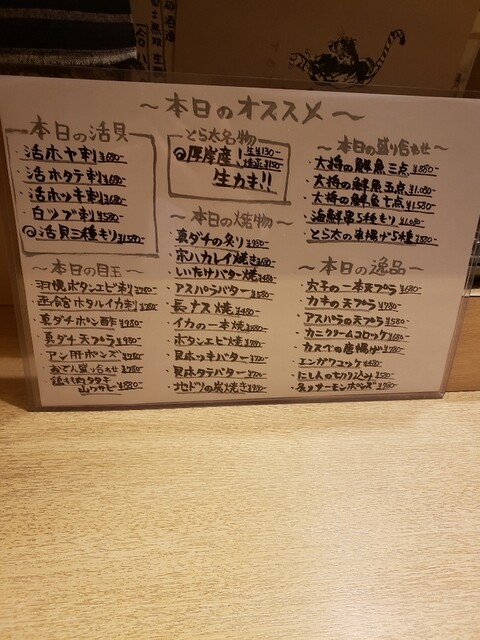 〜本日のオススメ〜
本日の活貝
活ホヤ刺 ¥680-
活ホタテ刺 ¥680-
活ホッキ刺 ¥680-
白ツブ刺 ¥580-
活貝三種モリ ¥1,580-
〜本日の目玉〜
羽幌ボタンエビ刺 ¥780-
ホタルイカ刺 ¥780-
真ダチポン酢 ¥980-
真ダチ天プラ ¥980-
アン肝ポンズ ¥780-
おでん盛り合わせ ¥780-
タタキ
山ワサビ ¥880-
とら太名物
厚岸産！ 生¥130-
¥150-
生カキ!!
〜本日の焼物〜
真ダチの炙り ¥980-
宗八カレイ焼き ¥680-
いたけバター焼 ¥480-
アスパラバター ¥580-
長ナス焼 ¥480-
イカの一本焼 ¥680-
ボタンエビ焼 ¥780-
貝ホッキバター ¥780-
貝ホタテバター ¥780-
地ドリの炭焼き ¥980-
〜本日の盛り合わせ〜
大将の鮮魚三点 ¥880-
大将の鮮魚五点 ¥1,080-
大将の鮮魚七点 ¥1,580-
海鮮串5種モリ ¥1,080-
とら太の串揚げ5種 ¥880-
〜本日の逸品〜
穴子の一本天プラ ¥680-
カキの天プラ ¥780-
アスパラの天プラ ¥580-
カニクリームコロッケ ¥680-
カスベの唐揚げ ¥780-
エンガワユッケ ¥480-
にしんの切り込み ¥380-
炙りサーモンポンズ ¥780-